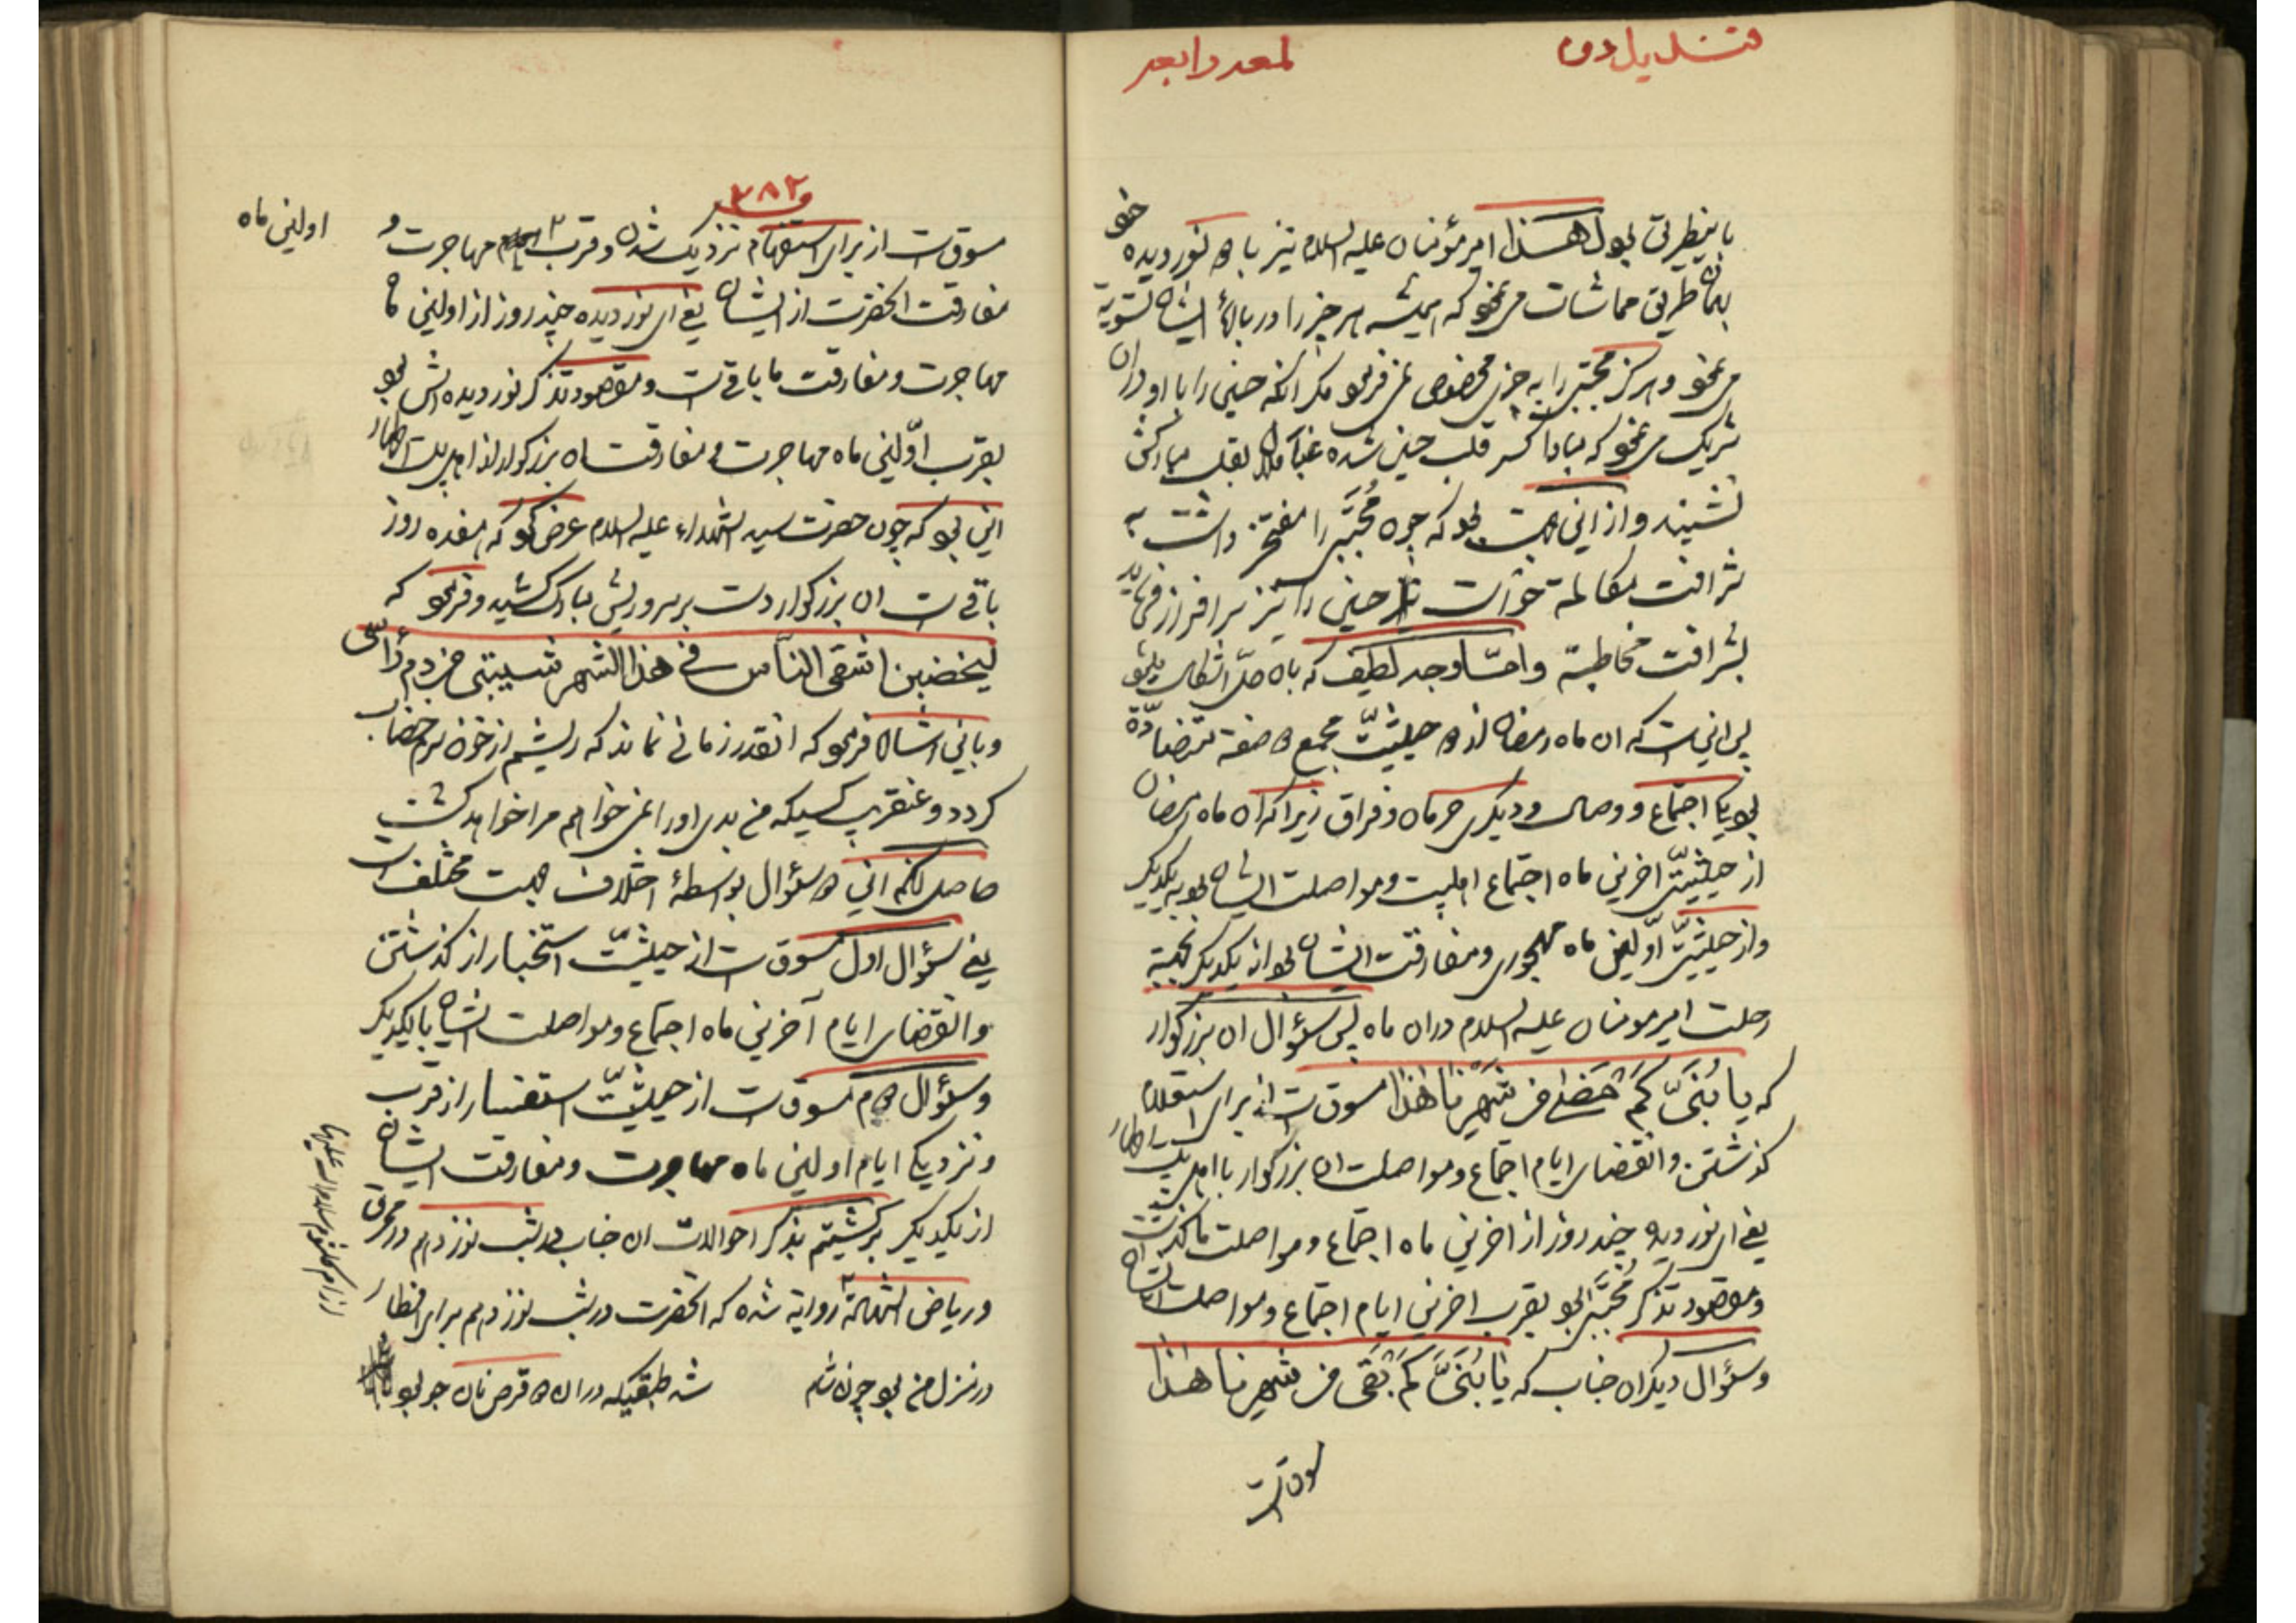 قندیل دوم
لمعه رابعه
باینطریق بود لهذا امیر مؤمنان علیه السلام نیز با دو نور دیده خود
بهمان طریق مماشات می نمود که همیشه هر چیز را در بارهٔ ایشان تسویه
می نمود و هرکز مجتبی را به چیزی مخصوص نمی فرمود مکر آنکه حسین را با او در آن
شریک می نمود که مبادا کسر قلب حسین شده غبار ملال بقلب مبارکش
نشیند و از این جهت بود که چون مجتبی را مفتخر داشت به
شرافت مکالمه خواست تا حسین را نیز سرافراز فرماید
بشرافت مخاطبه و امّا وجه لطیف که بآن حلّ اشکال میشود
پس این است که آن ماه رمضان از دو حیثیّت مجمع دو صفة متضادّة
بود یکی اجتماع و وصال و دیکری حرمان و فراق زیرا که آن ماه رمضان
از حیثیّتی آخرین ماه اجتماع اهلبیت و مواصلت ایشان بود به یکدیکر
و از حیثیّتی اوّلین ماه مهجوری و مفارقت ایشان بود از یکدیکر بجهة
رحلت امیر مومنان علیه السلام در آن ماه پس سؤال آن بزرکوار
که یا بُنَیَّ کَمْ مَضٰی من شَهْرِنا هٰذا مسوق است از برای استعلام
کذشتن و انقضای ایام اجتماع و مواصلت آن بزرکوار با اهل بیت اطهار
یعنی ای نور دیده چند روز از آخرین ماه اجتماع و مواصلت ما کذشته است
و مقصود تذکر مجتبی بود بقرب آخرین ایام اجتماع و مواصلت ایشان
و سئوال دیکر آن جناب که یا بُنَیَّ کَمْ بَقَی من شهرنا هذا
مسوق است
۳۸۲
مسوق است از برای استفهام نزدیک شدن و قرب ایام مهاجرت و
اولین ماه
مفارقت آنحضرت از ایشان یعنی ای نور دیده چند روز از اولین ماه
مهاجرت و مفارقت ما باقی است و مقصود تذکر نور دیده اش بود
بقرب اوّلین ماه مهاجرت و مفارقت آن بزرکوار از اهل بیت اطهار
این بود که چون حضرت سید الشهداء علیه السلام عرض نمود که هفده روز
باقی است آن بزرکوار دست بر سر و ریش مبارک کشید و فرمود که
لیخضبن اشقی النّاس فی هذا الشهر شیبتی من دم رأسی
و باین اشاره فرمود که آنقدر زمانی نماند که ریشم از خون سرم خضاب
کردد و عنقریب کسیکه من بدی او را نمی خواهم مرا خواهد کشت
حاصل آنکه این دو سئوال بواسطهٔ اختلاف جهت مختلف است
یعنی سئوال اول مسوق است از حیثیّت استخبار از کذشتن
و انقضای ایام آخرین ماه اجتماع و مواصلت ایشان با یکدیکر
و سئوال دوم مسوق است از حیثیّت استفسار از قرب
و نزدیکی ایام اولین ماه مهاجرت و مفارقت ایشان
از یکدیکر برکشتیم بذکر احوالات آن جناب در شب نوزدهم در محرق
و ریاض الشهادة روایة شده که آنحضرت در شب نوزدهم برای افطار
در منزل من بود چون شام شد طبقیکه در آن دو قرص نان جو بود
از ام کلثوم سلام الله علیها